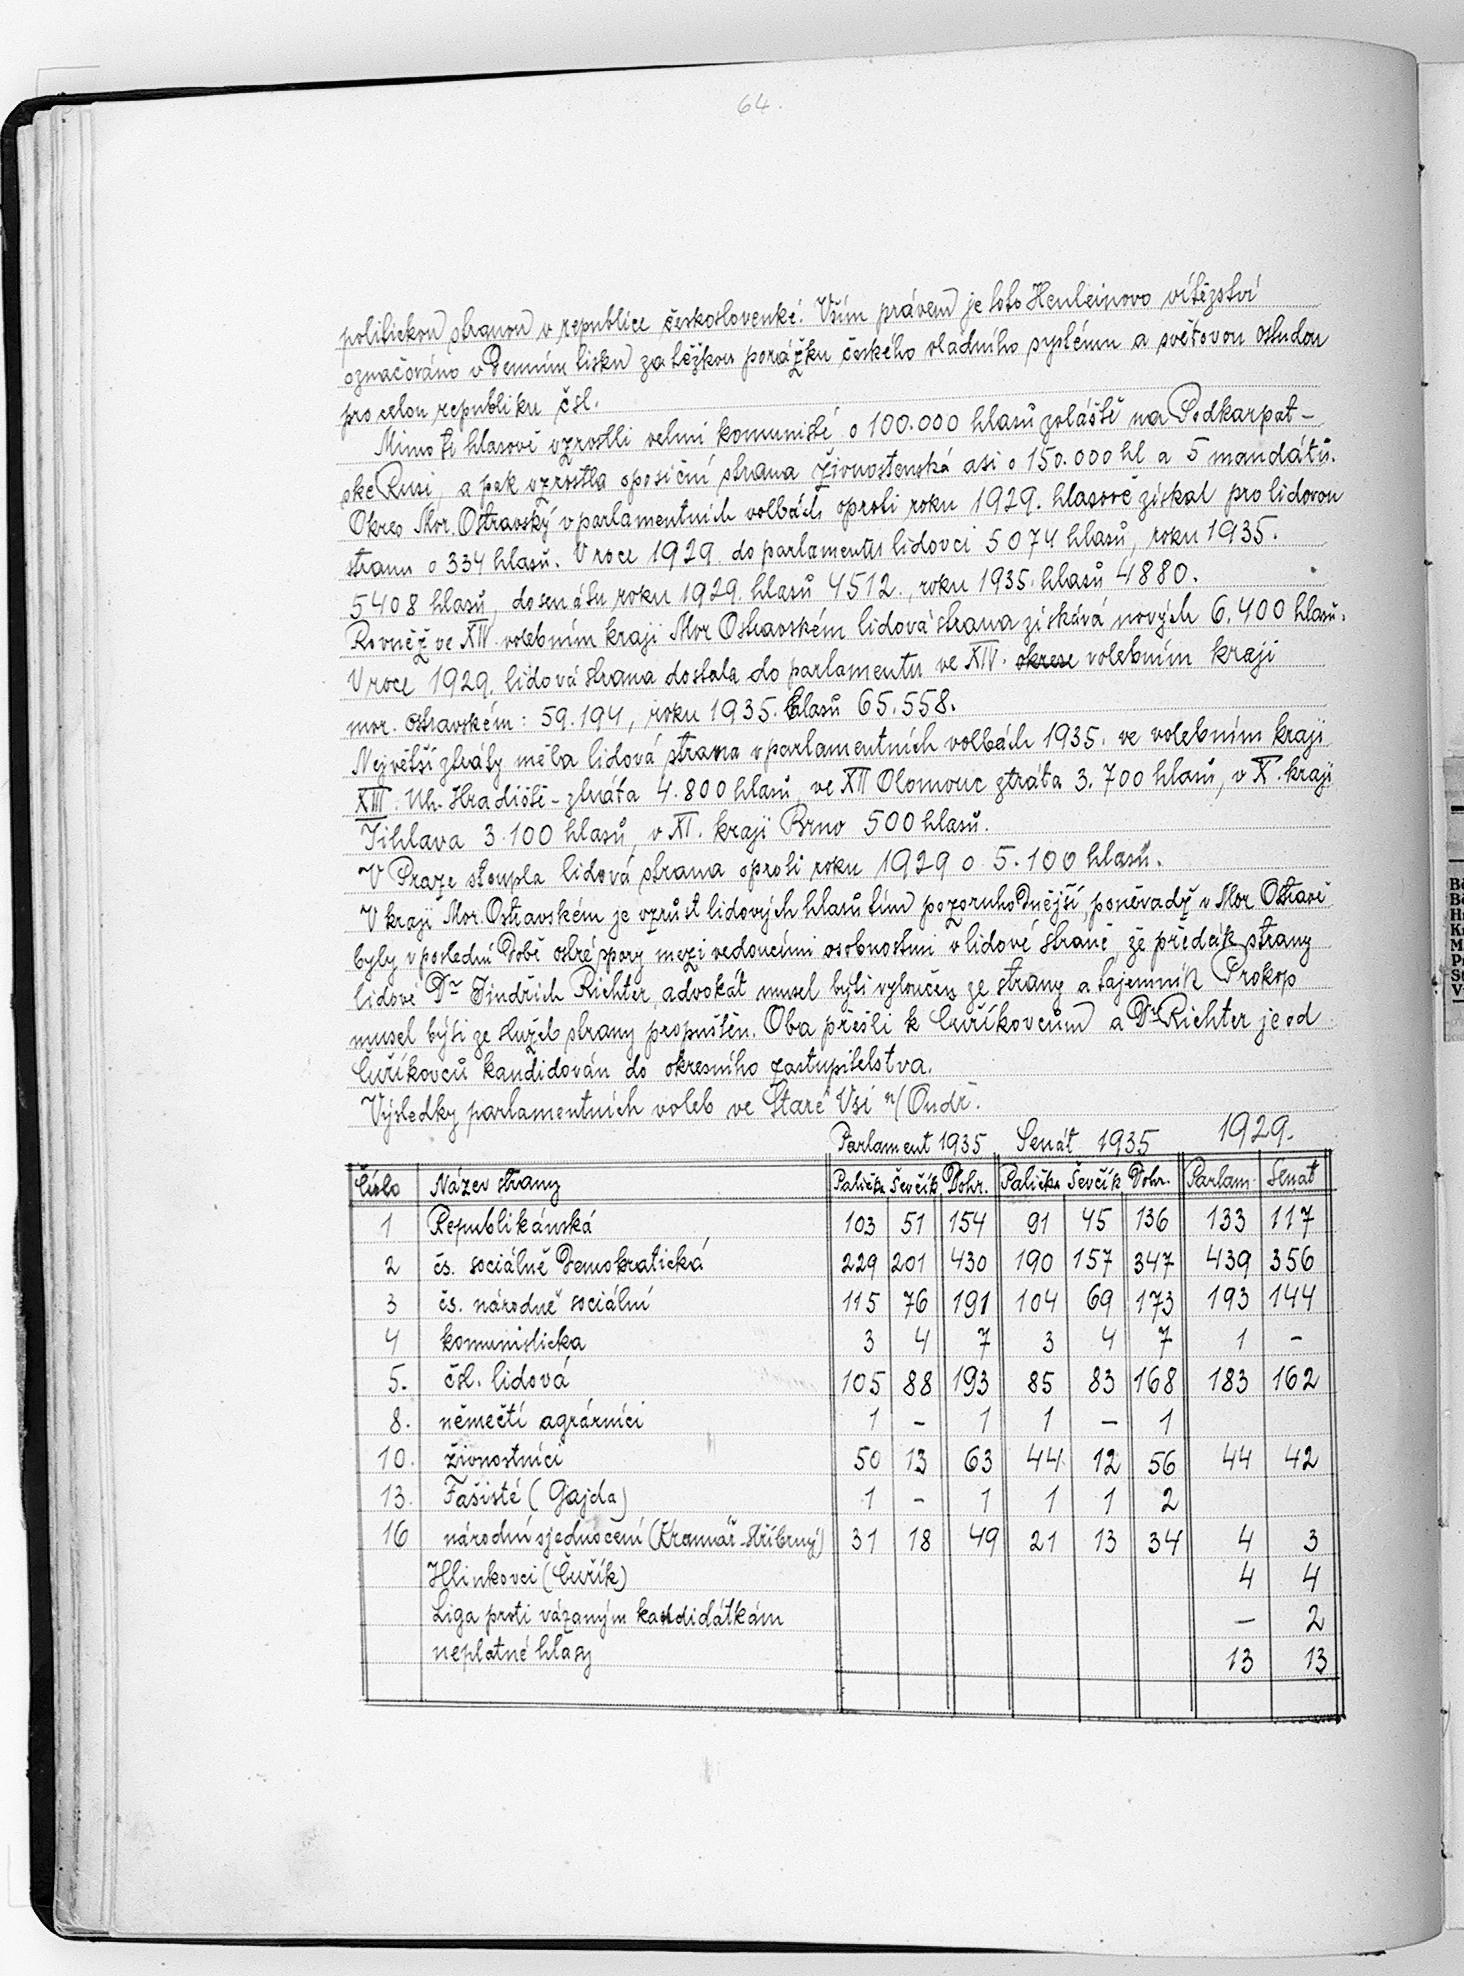 64.
politickou stranou v republice československé. Vším právem je toto Henleinovo vítězství
označováno v denním tisku za těžkou porážku českého vládního systému a světovou ostudou
pro celou republiku čsl.
Mimo to hlasově vzrostli velmi komunisté o 100.000 hlasů zvláště na Podkarpat-
ské Rusi, a pak vzrostla oposiční strana živnostenská asi o 150.000 hl a 5 mandátů.
Okres Mor. Ostravský v parlamentních volbách oproti roku 1929. hlasově získal pro lidovou
stranu o 334 hlasů. V roce 1929. do parlamentu lidovci 5074 hlasů, roku 1935.
5408 hlasů, do senátu roku 1929. hlasů 4512. roku 1935. hlasů 4880.
Rovněž ve XIV. volebním kraji Mor Ostravském lidová strana získává nových 6.400 hlasů.
V roce 1929. lidová strana dostala do parlamentu ve XIV. okrese volebním kraji
mor. ostravském: 59.194, roku 1935. hlasů 65.558.
Největší ztráty měla lidová strana v parlamentních volbách 1935. ve volebním kraji
XIII. Uh. Hradiště - ztráta 4.800 hlasů, ve XII Olomouc ztráta 3.700 hlasů, v X. kraji
Jihlava 3.100 hlasů, v XI. kraji Brno 500 hlasů.
V Praze stoupla lidová strana oproti roku 1929 o 5.100 hlasů.
V kraji Mor. Ostravském je vzrůst lidových hlasů tím pozoruhodnější, poněvadž v Mor Ostravě
byly v poslední době ostré spory mezi vedoucími osobnostmi v lidové straně, že předák strany
lidové Dr Jindřich Richter, advokát musel býti vyloučen ze strany a tajemník Prokop
musel býti ze služeb strany propuštěn. Oba přešli k Čuříkovcům a Dr Richter je od
Čuříkovců kandidován do okresního zastupitelstva.
Výsledky parlamentních voleb ve Staré Vsi n/Ondř.
Parlament 1935 Senát 1935 1929.
Číslo Název strany Palička Ševčík Dohr. Palička Ševčík Dohr. Parlam. Senát
1 Republikánská 103 51 154 91 45 136 133 117
2 čs. sociálně demokratická 229 201 430 190 157 347 439 356
3 čs. národně sociální 115 76 191 104 69 173 193 144
4 komunisticka 3 4 7 3 4 7 1 -
5. čsl. lidová 105 88 193 85 83 168 183 162
8. němečtí agrárníci 1 - 1 1 - 1
10. živnostníci 50 13 63 44 12 56 44 42
13. Fašisté (Gajda) 1 - 1 1 1 2
16 národní sjednocení (Kramář-Stříbrný) 31 18 49 21 13 34 4 3
Hlinkovci (Čuřík) 4 4
Liga proti vázaným kandidátkám - 2
neplatné hlasy 13 13